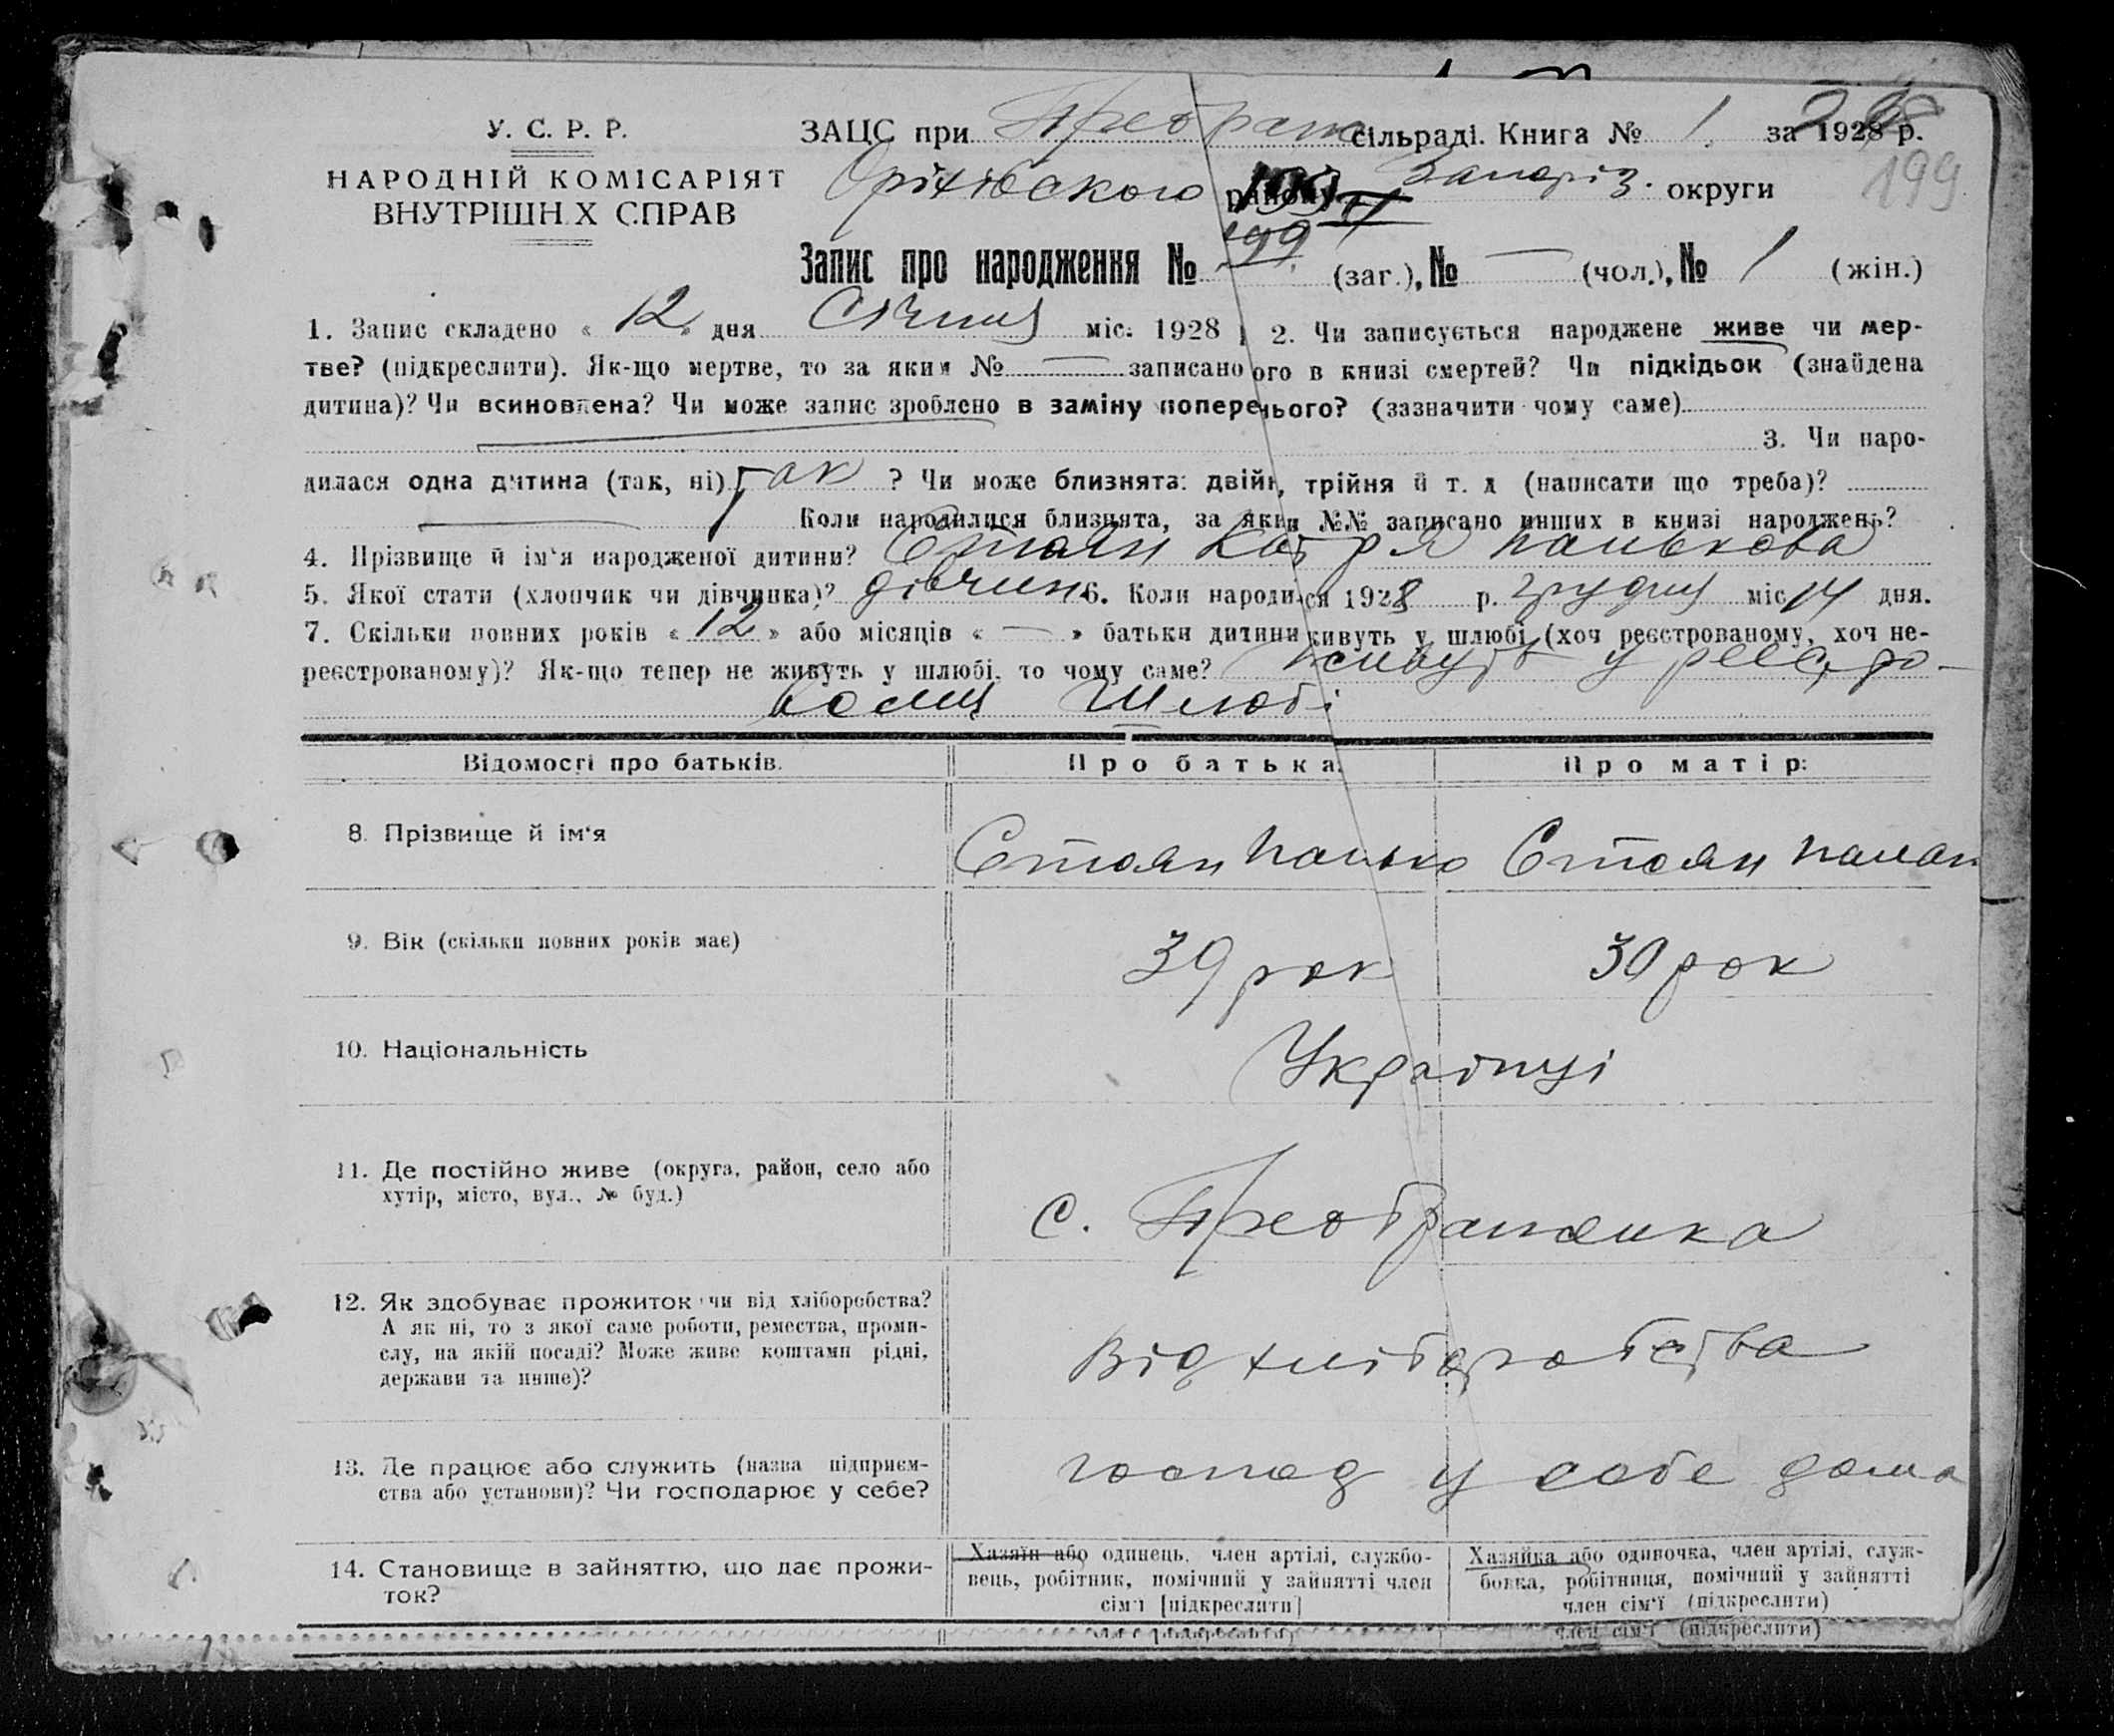 У. С. Р. Р.
НАРОДНІЙ КОМІСАРІЯТ
ВНУТРІШН Х СПРАВ
ЗАЦС при Преображ сільраді. Книга № 1 за 1928 р.
199
Оріхівського району Запоріз. округи
Запис про народження № 199 (заг.), № — (чол.), № 1 (жін.)
1. Запис складено « 12 » дня Січня міс. 1928 2. Чи записується народжене живе чи мер-
тве? (підкреслити). Як-що мертве, то за яким № — записано ого в книзі смертей? Чи підкідьок (знайдена
дитина)? Чи всиновлена? Чи може запис зроблено в заміну попереднього? (зазначити чому саме)
3. Чи наро-
дилася одна дитина (так, ні) Так ? Чи може близнята: двійн, трійня й т. д (написати що треба)?
Коли народилися близнята, за яким №№ записано инших в книзі народжень?
4. Прізвище й ім'я народженої дитини? Стоян Катря Панькова
5. Якої стати (хлопчик чи дівчинка)? дівчин 6. Коли народи ся 1928 р. грудня міс 14 дня.
7. Скільки повних років « 12 » або місяців « — » батьки дитини живуть у шлюбі (хоч реєстрованому, хоч не-
реєстрованому)? Як-що тепер не живуть у шлюбі, то чому саме? живуть у
шлюбі
Відомості про батьків.
Про батька:
Про матір:
8. Прізвище й ім'я
Стоян Панько
Стоян
9. Вік (скільки повних років має)
39 рок
30 рок
10. Національність
Українці
11. Де постійно живе (округа, район, село або
хутір, місто, вул., № буд.)
с. Преображенка
12. Як здобуває прожиток чи від хліборобства?
А як ні, то з якої саме роботи, ремества, проми-
слу, на якій посаді? Може живе коштами рідні,
держави та инше)?
Від хліборобства
13. Де працює або служить (назва підприєм-
ства або установи)? Чи господарює у себе?
господ у собе дома
14. Становище в зайняттю, що дає прожи-
ток?
Хазяїн або одинець, член артілі, службо-
вець, робітник, помічний у зайнятті член
сім'ї [підкреслити]
Хазяйка або одиночка, член артілі, служ-
бовка, робітниця, помічний у зайнятті
член сім'ї (підкреслити)
член сім'ї (підкреслити)